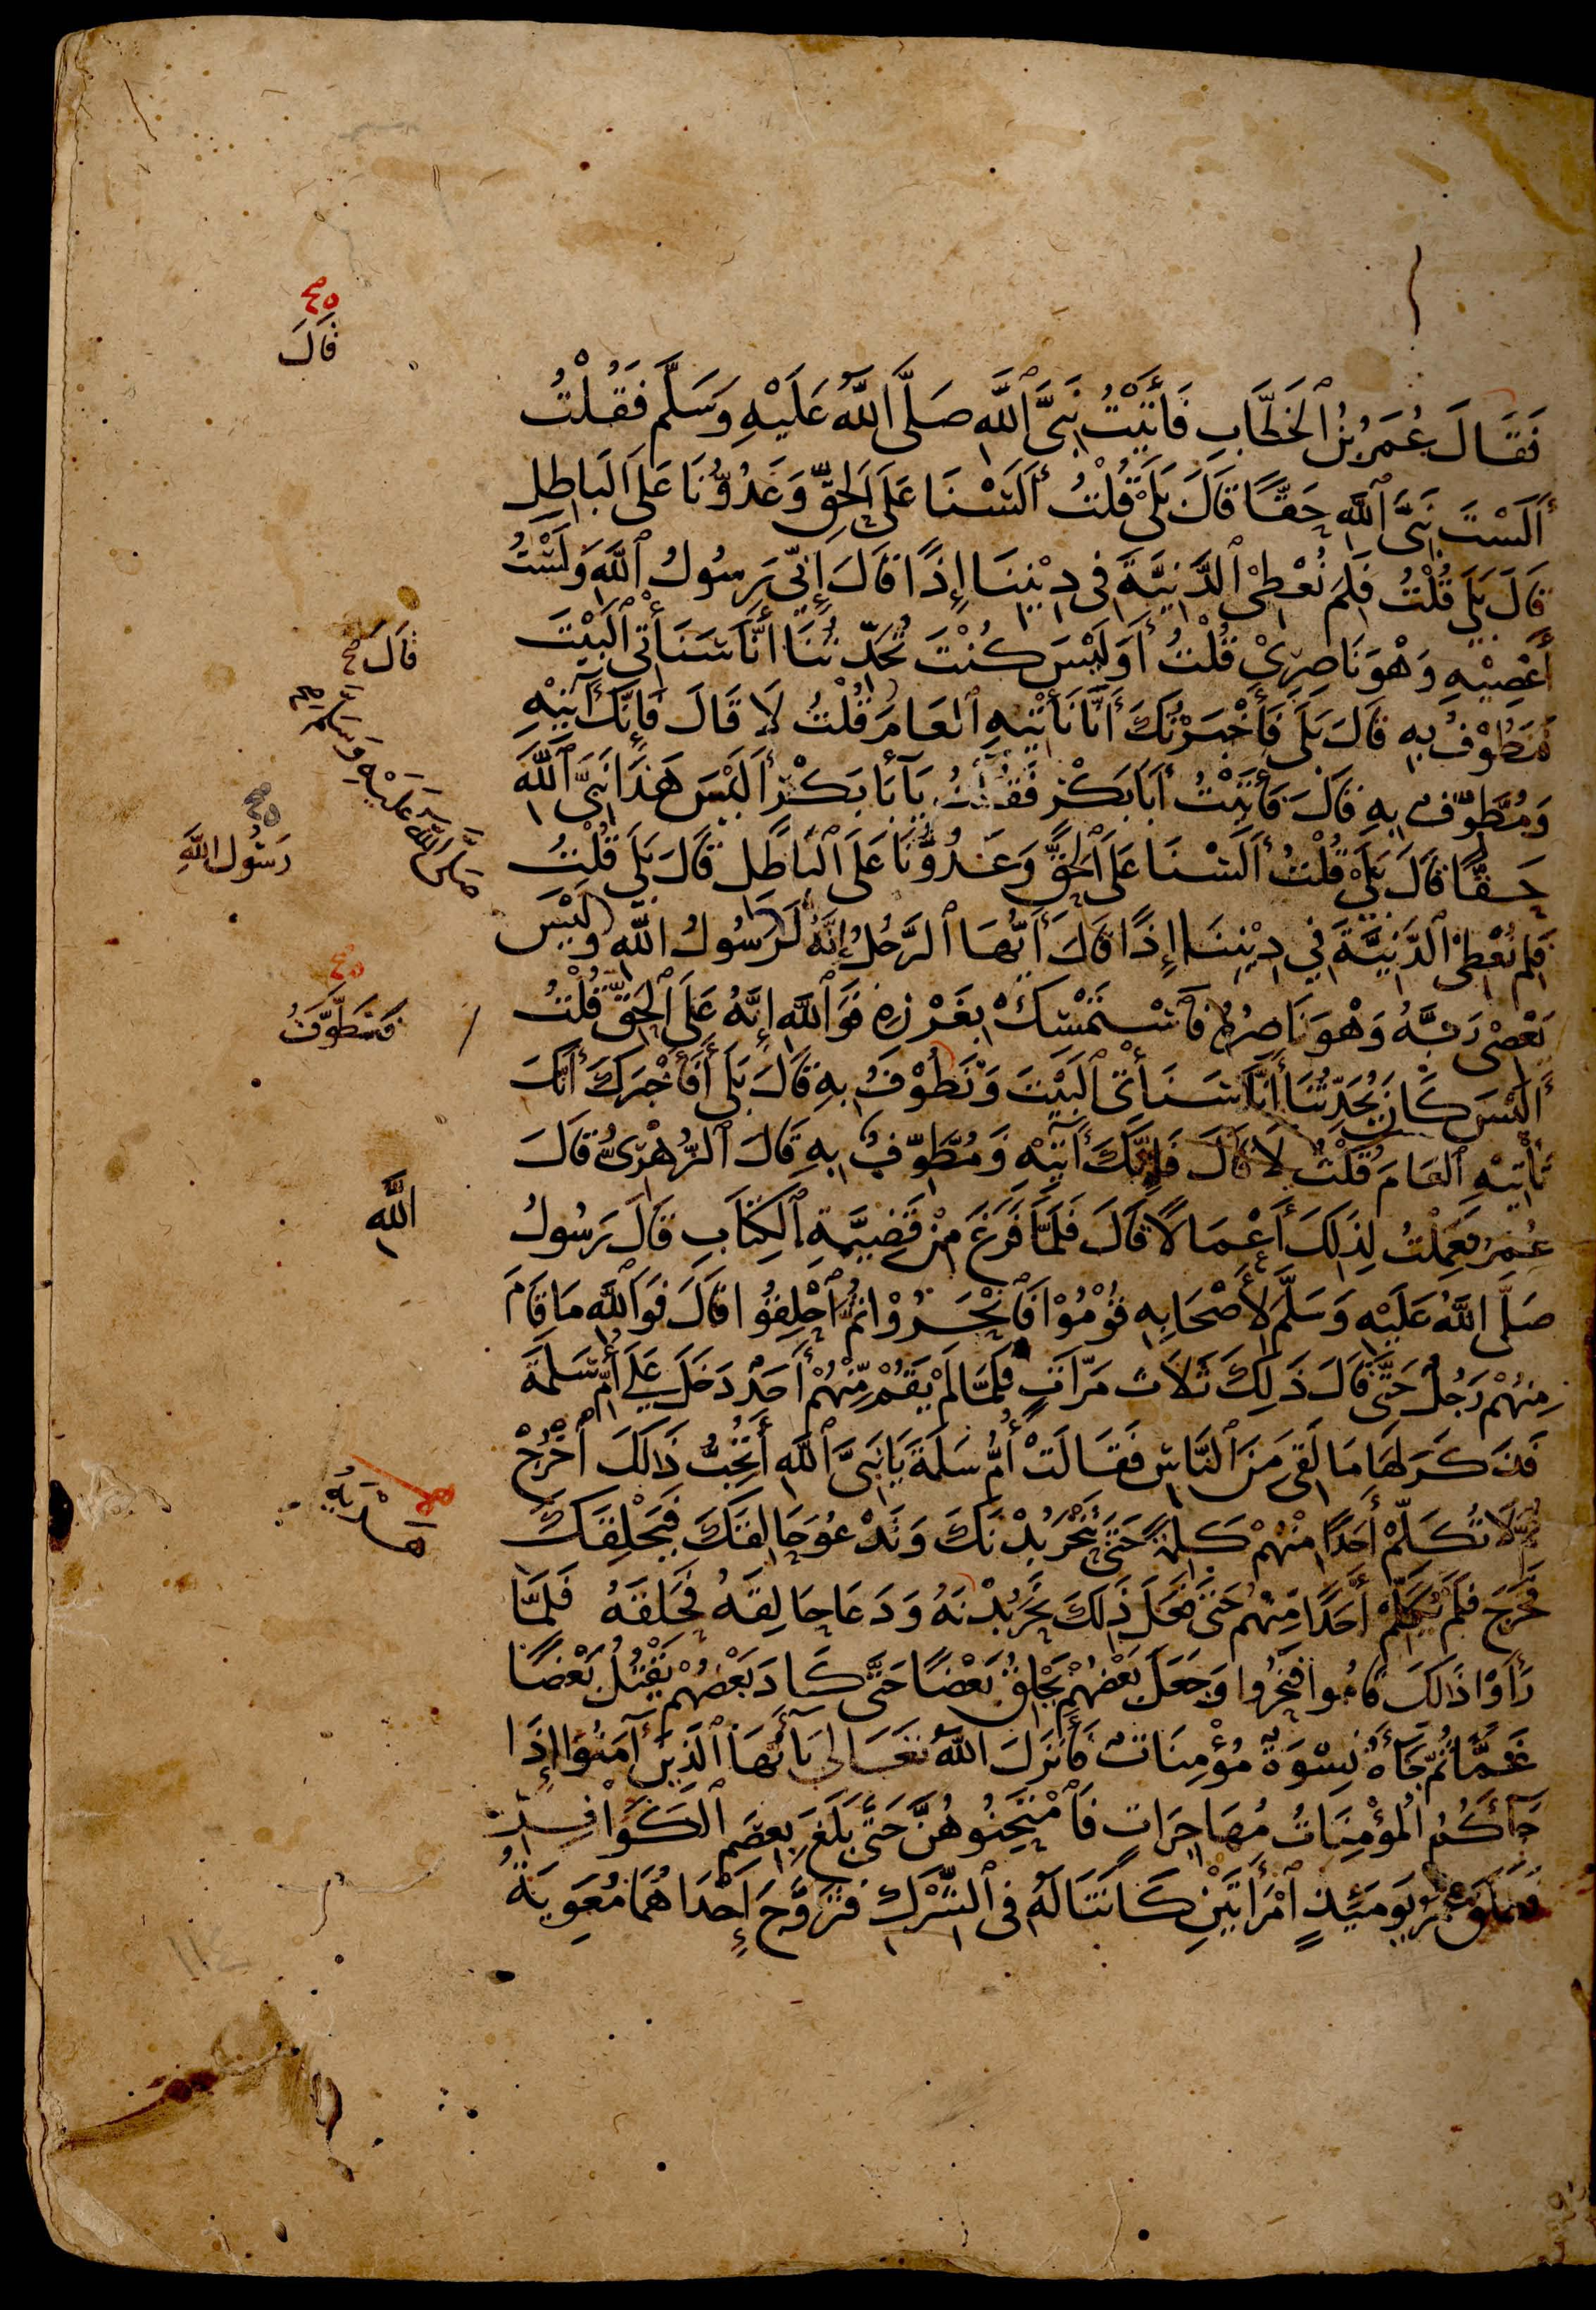 فَقَالَ عُمَرُ بْنُ ٱلْخَطَّابِ فَأَتَيْتُ نَبِيَّ ٱللَّهِ صَلَّى ٱللَّهُ عَلَيْهِ وَسَلَّمَ فَقُلْتُ
أَلَسْتَ نَبِيَّ ٱللَّهِ حَقًّا قَالَ بَلَى قُلْتُ أَلَسْنَا عَلَى ٱلْحَقِّ وَعَدُوُّنَا عَلَى ٱلْبَاطِلِ
قَالَ بَلَى قُلْتُ فَلِمَ نُعْطِي ٱلدَّنِيَّةَ فِي دِيْنِنَا إِذًا قَالَ إِنِّي رَسُولُ ٱللَّهِ وَلَسْتُ
أَعْصِيْهِ وَهْوَ نَاصِرِيْ قُلْتُ أَوَلَيْسَ كُنْتَ تُحَدِّثُنَا أَنَّا سَنَأْتِي ٱلْبَيْتَ
فَنَطُوْفُ بِهِ قَالَ بَلَى فَأَخْبَرْتُكَ أَنَّا نَأْتِيْهِ ٱلْعَامَ قُلْتُ لَا قَالَ فَإِنَّكَ آتِيْهِ
وَمُطَّوِّفٌ بِهِ قَالَ فَأَتَيْتُ أَبَا بَكْرٍ فَقُلْتُ يَآ أَبَا بَكْرٍ أَلَيْسَ هَذَا نَبِيَّ ٱللَّهِ
حَقًّا قَالَ بَلَى قُلْتُ أَلَسْنَا عَلَى ٱلْحَقِّ وَعَدُوُّنَا عَلَى ٱلْبَاطِلِ قَالَ بَلَى قُلْتُ
فَلِمَ نُعْطِي ٱلدَّنِيَّةَ فِي دِيْنِنَا إِذًا قَالَ أَيُّهَا ٱلرَّجُلُ إِنَّهُ لَرَسُولُ اللَّهِ وَلَيْسَ
يَعْصِي رَبَّهُ وَهْوَ نَاصِرُهُ فَٱسْتَمْسِكْ بِغَرْزِهِ فَوَٱللَّهِ إِنَّهُ عَلَى ٱلْحَقِّ قُلْتُ
أَلَيْسَ كَانَ يُحَدِّثُنَا أَنَّا سَنَأْتِي ٱلْبَيْتَ وَنَطُوْفُ بِهِ قَالَ بَلَى أَفَأَخْبَرَكَ أَنَّكَ
تَأْتِيْهِ ٱلْعَامَ قُلْتُ لَا قَالَ فَإِنَّكَ آتِيْهِ وَمُطَّوِّفٌ بِهِ قَالَ ٱلزُّهْرِيُّ قَالَ
عُمَرُ فَعَمِلْتُ لِذَلِكَ أَعْمَالًا قَالَ فَلَمَّا فَرَغَ مِنْ قَضِيَّةِ ٱلْكِتَابِ قَالَ رَسُولُ
صَلَّى اللَّهُ عَلَيْهِ وَسَلَّمَ لِأَصْحَابِهِ قُوْمُوْا فَٱنْحَرُوْا ثُمَّ ٱحْلِقُوا قَالَ فَوَٱللَّهِ مَا قَامَ
مِنْهُمْ رَجُلٌ حَتَّى قَالَ ذَلِكَ ثَلَاثَ مَرَّاتٍ فَلَمَّا لَمْ يَقُمْ مِنْهُمْ أَحَدٌ دَخَلَ عَلَى أُمِّ سَلَمَةَ
فَذَكَرَ لَهَا مَا لَقِيَ مِنَ ٱلنَّاسِ فَقَالَتْ أُمُّ سَلَمَةَ يَا نَبِيَّ ٱللَّهِ أَتُحِبُّ ذَالِكَ ٱخْرُجْ
ثُمَّ لَا تُكَلِّمْ أَحَدًا مِنْهُمْ كَلِمَةً حَتَّى تَنْحَرَ بُدْنَكَ وَتَدْعُوَ حَالِقَكَ فَيَحْلِقَكَ
فَخَرَجَ فَلَمْ يُكَلِّمْ أَحَدًا مِنْهُمْ حَتَّى فَعَلَ ذَلِكَ نَحَرَ بُدْنَهُ وَدَعَا حَالِقَهُ فَحَلَقَهُ فَلَمَّا
رَأَوْا ذَالِكَ قَامُوا فَنَحَرُوا وَجَعَلَ بَعْضُهُمْ يَحْلِقُ بَعْضًا حَتَّى كَادَ بَعْضُهُمْ يَقْتُلُ بَعْضًا
غَمًّا ثُمَّ جَآءَهُ نِسْوَةٌ مُؤْمِنَاتٌ فَأَنْزَلَ اللَّهُ تَعَالَى يَآ أَيُّهَا ٱلَّذِيْنَ آمَنُوا إِذَا
جَآءَكُمُ ٱلْمُؤْمِنَاتُ مُهَاجِرَاتٍ فَٱمْتَحِنُوهُنَّ حَتَّى بَلَغَ بِعِصَمِ ٱلْكَوَافِرِ
فَطَلَّقَ عُمَرُ يَوْمَئِذٍ ٱمْرَأَتَيْنِ كَانَتَا لَهُ فِي ٱلشِّرْكِ فَتَزَوَّجَ إِحْدَاهُمَا مُعَوِيَةُ
قَالَ
قَالَ
صَلَّى اللَّهُ عَلَيْهِ وَسَلَّمَ
رَسُولُ اللَّهِ
فَنَطَّوَّفُ
اللَّهِ
هَدْيَهُ
١١٤